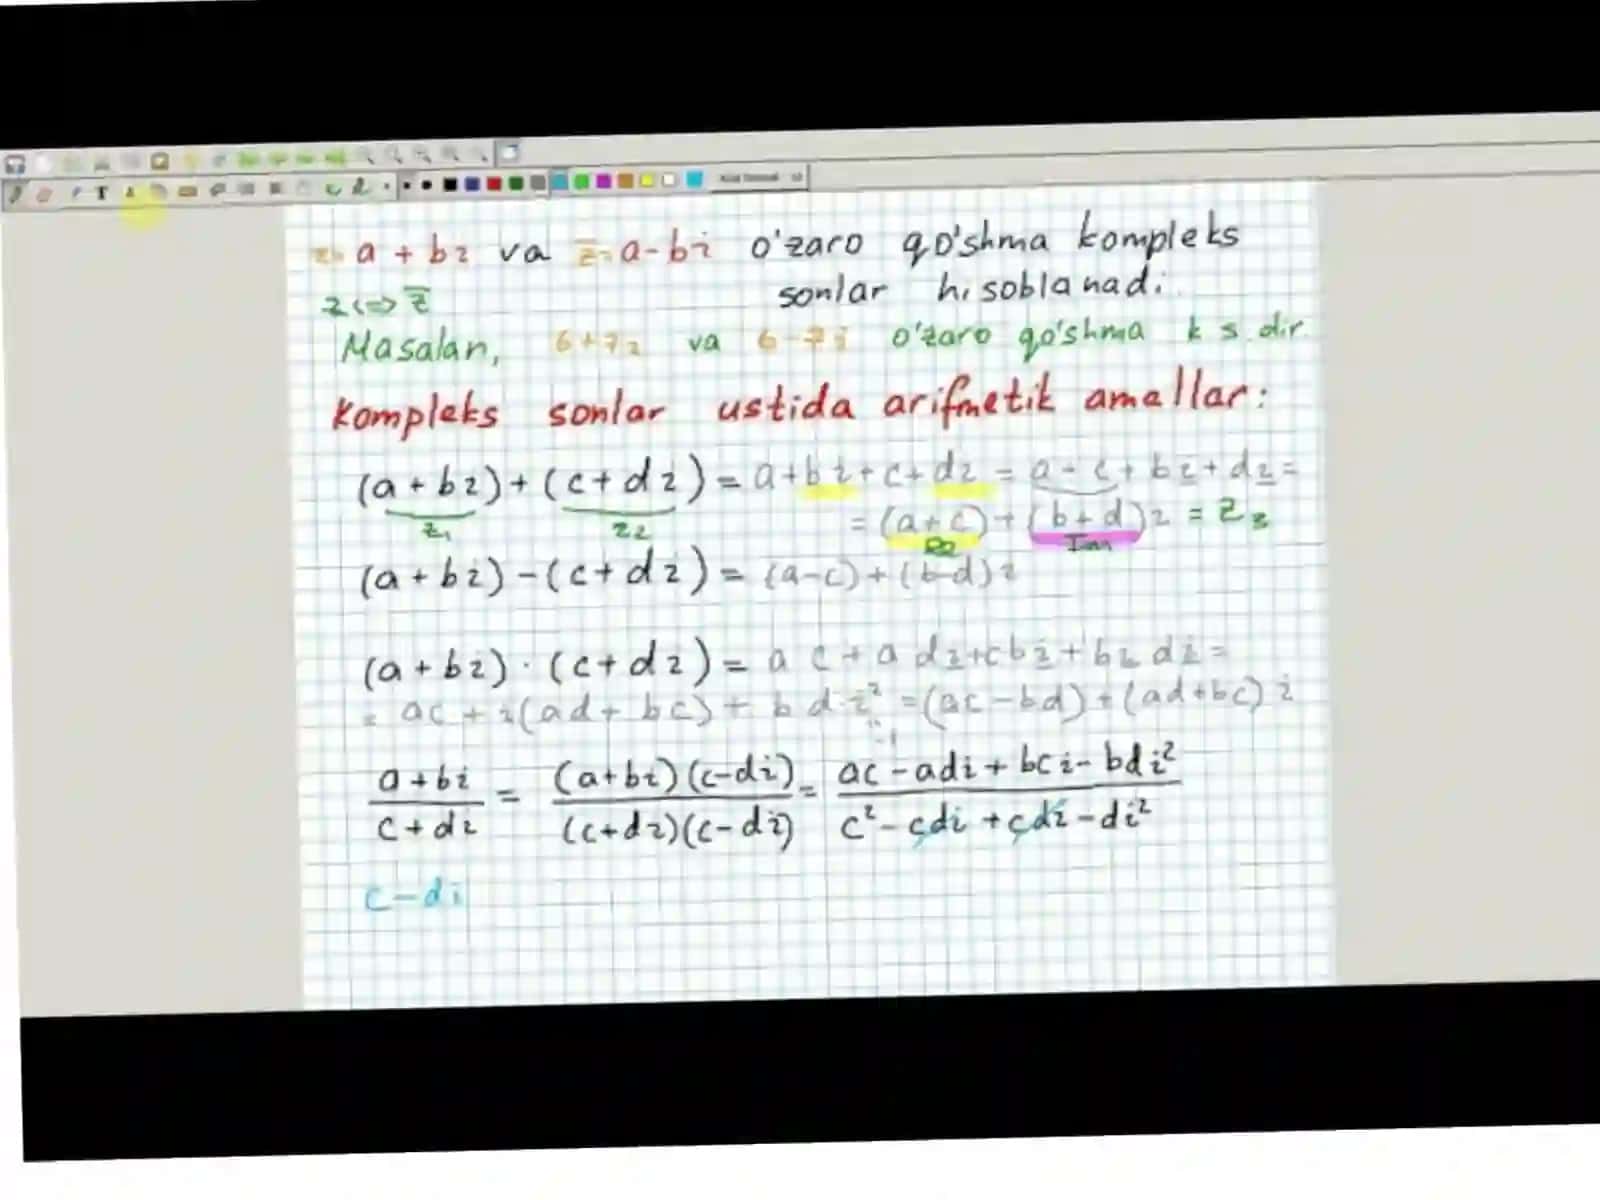 z= a + bi va z̅= a - bi o'zaro qo'shma kompleks
sonlar hisoblanadi.
z <=> z̅
Masalan, 6+7i va 6-7i o'zaro qo'shma k s.dir.
Kompleks sonlar ustida arifmetik amallar:
(a+bi)+(c+di)= a+bi+c+di = a+c+bi+di=
z₁ z₂ = (a+c)+(b+d)i = z₃
Re Im
(a+bi)-(c+di)= (a-c)+(b-d)i
(a+bi)·(c+di)= ac+adi+cbi+bidi=
= ac+i(ad+bc)+bd·i²=(ac-bd)+(ad+bc)i
-1
a+bi = (a+bi)(c-di) = ac-adi+bci-bdi²
c+di (c+di)(c-di) c²-cdi+cdi-di²
c-di